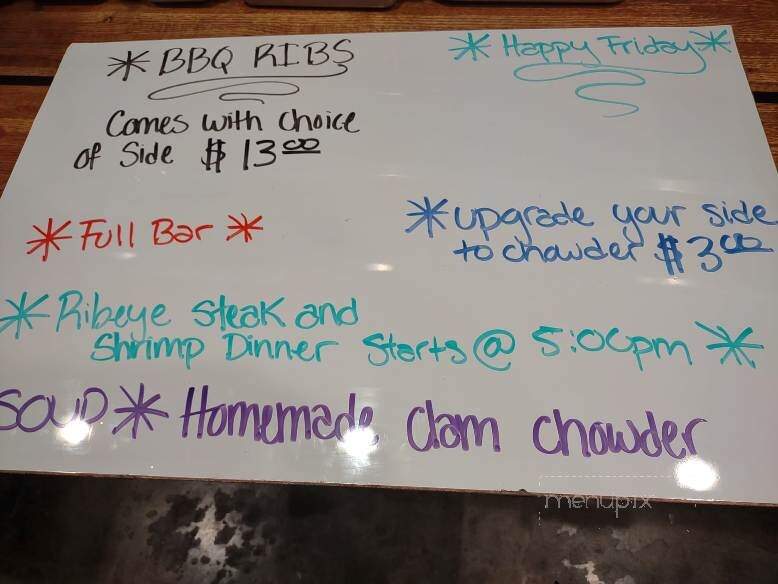 * BBQ RIBS
* Happy Friday *
Comes with choice
of Side $13.00
* Full Bar *
* upgrade your side
to chowder $3.00
* Ribeye steak and
Shrimp Dinner Starts @ 5:00pm *
SOUP * Homemade Clam chowder
menupix